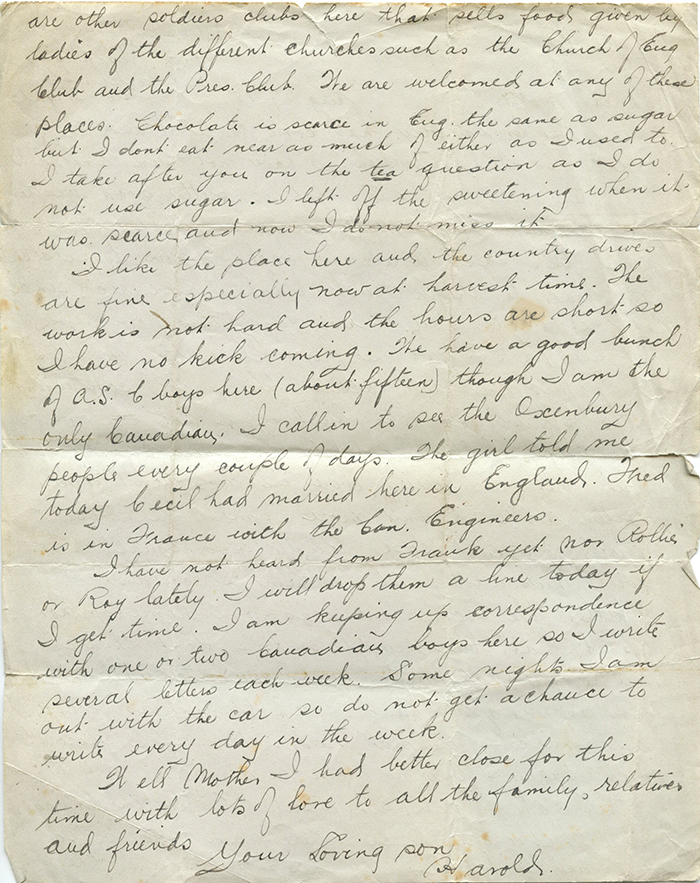 are other soldiers clubs here that sells food given by
ladies of the different churches such as the Church of Eng
Club and the Pres. Club. We are welcomed at any of these
places. Chocolate is scarce in Eng. the same as sugar
but I dont eat near as much of either as I used to.
I take after you on the tea question as I do
not use sugar. I left off the sweetening when it
was scarce and now I do not miss it
I like the place here and the country drives
are fine especially now at harvest time. The
work is not hard and the hours are short so
I have no kick coming. We have a good bunch
of A.S.C boys here (about fifteen) though I am the
only Canadian. I call in to see the Oxenbury
people every couple of days. The girl told me
today Cecil had married here in England. Fred
is in France with the Can. Engineers.
I have not heard from Frank yet nor Rollie
or Roy lately. I will drop them a line today if
I get time. I am keeping up correspondence
with one or two Canadian boys here so I write
several letters each week. Some nights I am
out with the car so do not get a chance to
write every day in the week.
Well Mother I had better close for this
time with lots of love to all the family, relatives
and friends
Your Loving son
Harold.